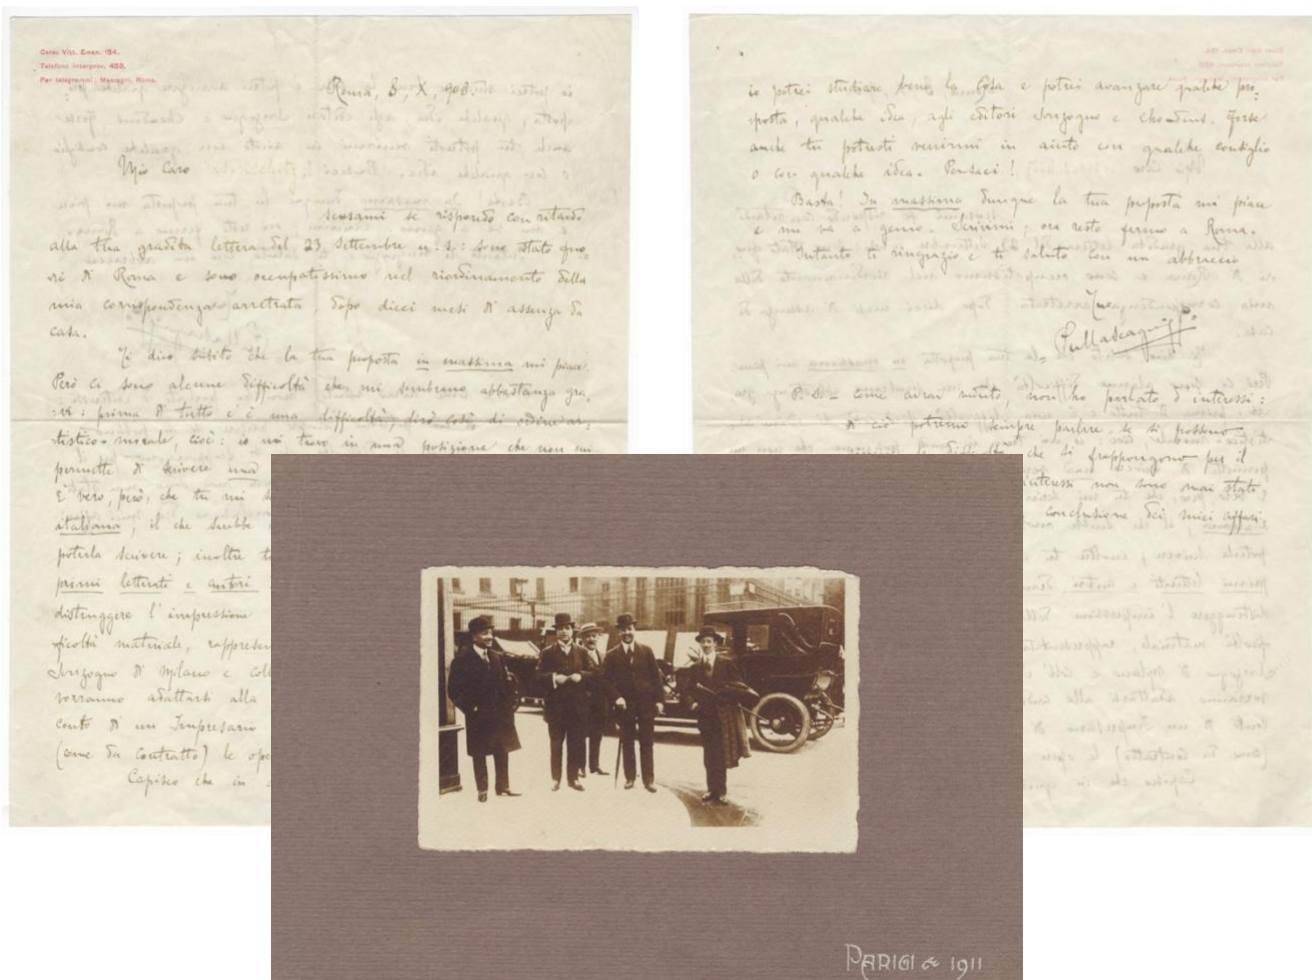 Corso Vitt. Eman. 154.
Telefono interprov. 459.
Per telegrammi: Mascagni, Roma.
Roma, X,
Mio Caro
scusami se rispondo con ritardo
alla tua gradita lettera del 23 settembre u. s.: sono stato fuo
ri di Roma e sono occupatissimo nel riordinamento della
mia corrispondenza arretrata, dopo dieci mesi di assenza da
casa.
Ti dico subito che la tua proposta in massima mi piace.
Però ci sono alcune difficoltà che mi sembrano abbastanza gra-
vi: prima di tutto c'è una difficoltà, dirò così, di ordine ar-
tistico-morale, cioè: io mi trovo in una posizione che non mi
permette di scrivere una
È vero, però, che tu mi
italiana, il che sarebbe
poterla scrivere; inoltre
primi letterati e autori
distruggere l'impressione
ficoltà materiale, rappresen
Sonzogno di Milano e
vorranno adattarsi alla
conto di un Impresario
(come da contratto) le ope
Capisco che in
io potrei studiare bene la cosa e potrei avanzare qualche pro-
posta, qualche idea, agli editori Sonzogno e Choudens. Forse
anche tu potresti venirmi in aiuto con qualche consiglio
o con qualche idea. Pensaci!
Basta! In massima dunque la tua proposta mi piace
e mi va a genio. Scrivimi; ora resto fermo a Roma.
Intanto ti ringrazio e ti saluto con un abbraccio
Tuo
PMascagni
P. S. - Come avrai notato, non ho parlato d'interessi:
di ciò potremo sempre parlare, se si possono
che si frappongono per il
interessi non sono mai stati
conclusione dei miei affari.
PARIGI 1911